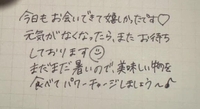 今日もお会いできて嬉しかったです♡
元気がなくなったら、またお待ち
しております☺
まだまだ暑いので、美味しい物を
食べてパワーチャージしましょう〜♪